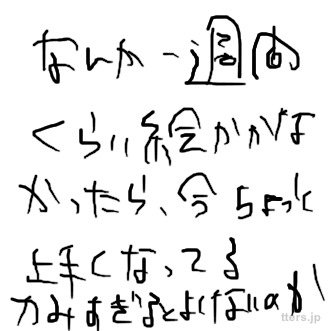 なんか一週間
くらい絵かかな
かったら、今ちょっと
上手くなってる
かみすぎるとよくないのか
tters.jp